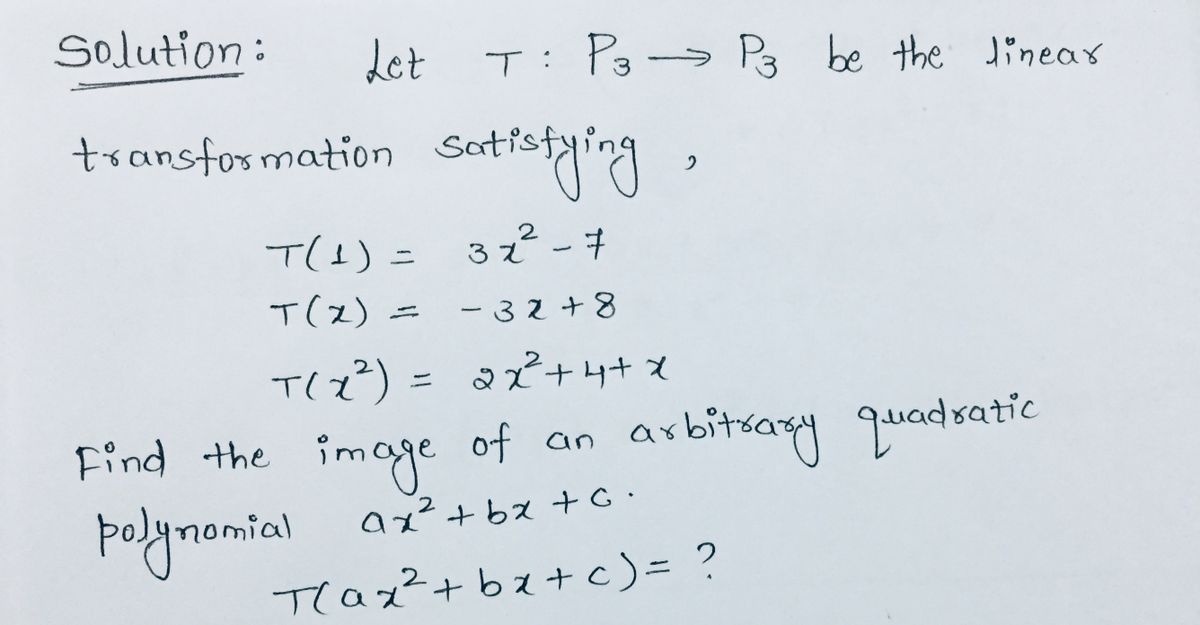 Solution: Let T : P₃ → P₃ be the linear
transformation satisfying,
T(1) = 3x² - 7
T(x) = -3x + 8
T(x²) = 2x² + 4 + x
Find the image of an arbitrary quadratic
polynomial ax² + bx + c.
T(ax² + bx + c) = ?